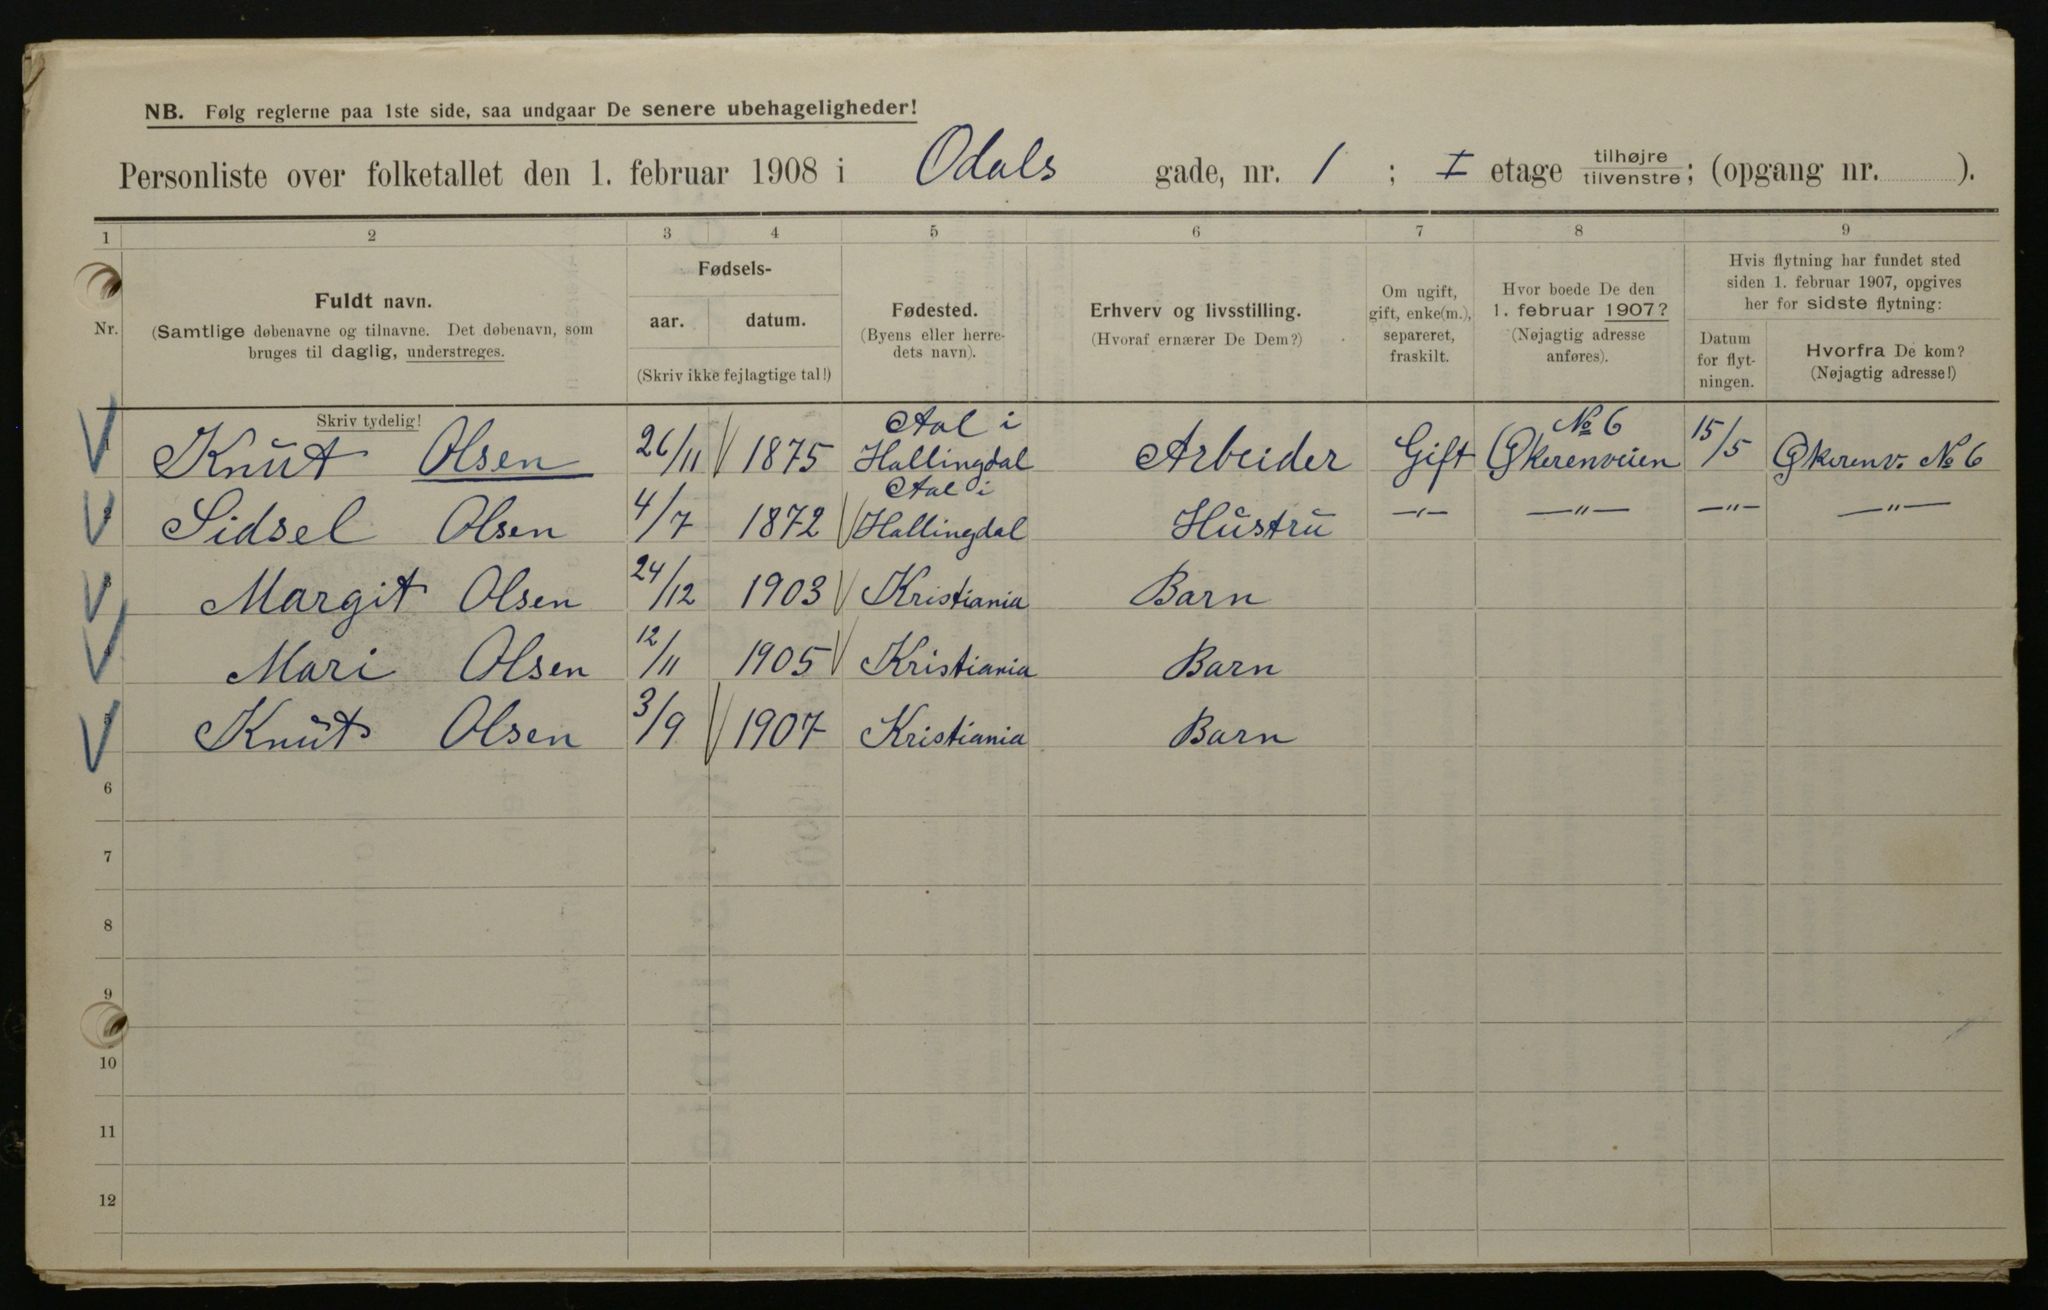 NB. Følg reglerne paa 1ste side, saa undgaar De senere ubehageligheder!
Personliste over folketallet den 1. februar 1908 i Odals gade, nr. 1 ; I etage tilhøjre/tilvenstre; (opgang nr. ).
1 2 3 4 5 6 7 8 9
Nr.
Fuldt navn.
(Samtlige døbenavne og tilnavne. Det døbenavn, som
bruges til daglig, understreges.
Skriv tydelig!
Fødsels-
aar. datum.
(Skriv ikke fejlagtige tal!)
Fødested.
(Byens eller herre-
dets navn).
Erhverv og livsstilling.
(Hvoraf ernærer De Dem?)
Om ugift,
gift, enke(m.),
separeret,
fraskilt.
Hvor boede De den
1. februar 1907?
(Nøjagtig adresse
anføres).
Hvis flytning har fundet sted
siden 1. februar 1907, opgives
her for sidste flytning:
Datum
for flyt-
ningen.
Hvorfra De kom?
(Nøjagtig adresse!)
Knut Olsen 26/11 1875 Aal i Hallingdal Arbeider Gift Økerenveien № 6 15/5 Økerenv. № 6
Sidsel Olsen 4/7 1872 Aal i Hallingdal Hustru —〃— —〃— —〃— —〃—
Margit Olsen 24/12 1903 Kristiania Barn
Mari Olsen 12/11 1905 Kristiania Barn
Knut Olsen 3/9 1907 Kristiania Barn
6
7
8
9
10
11
12